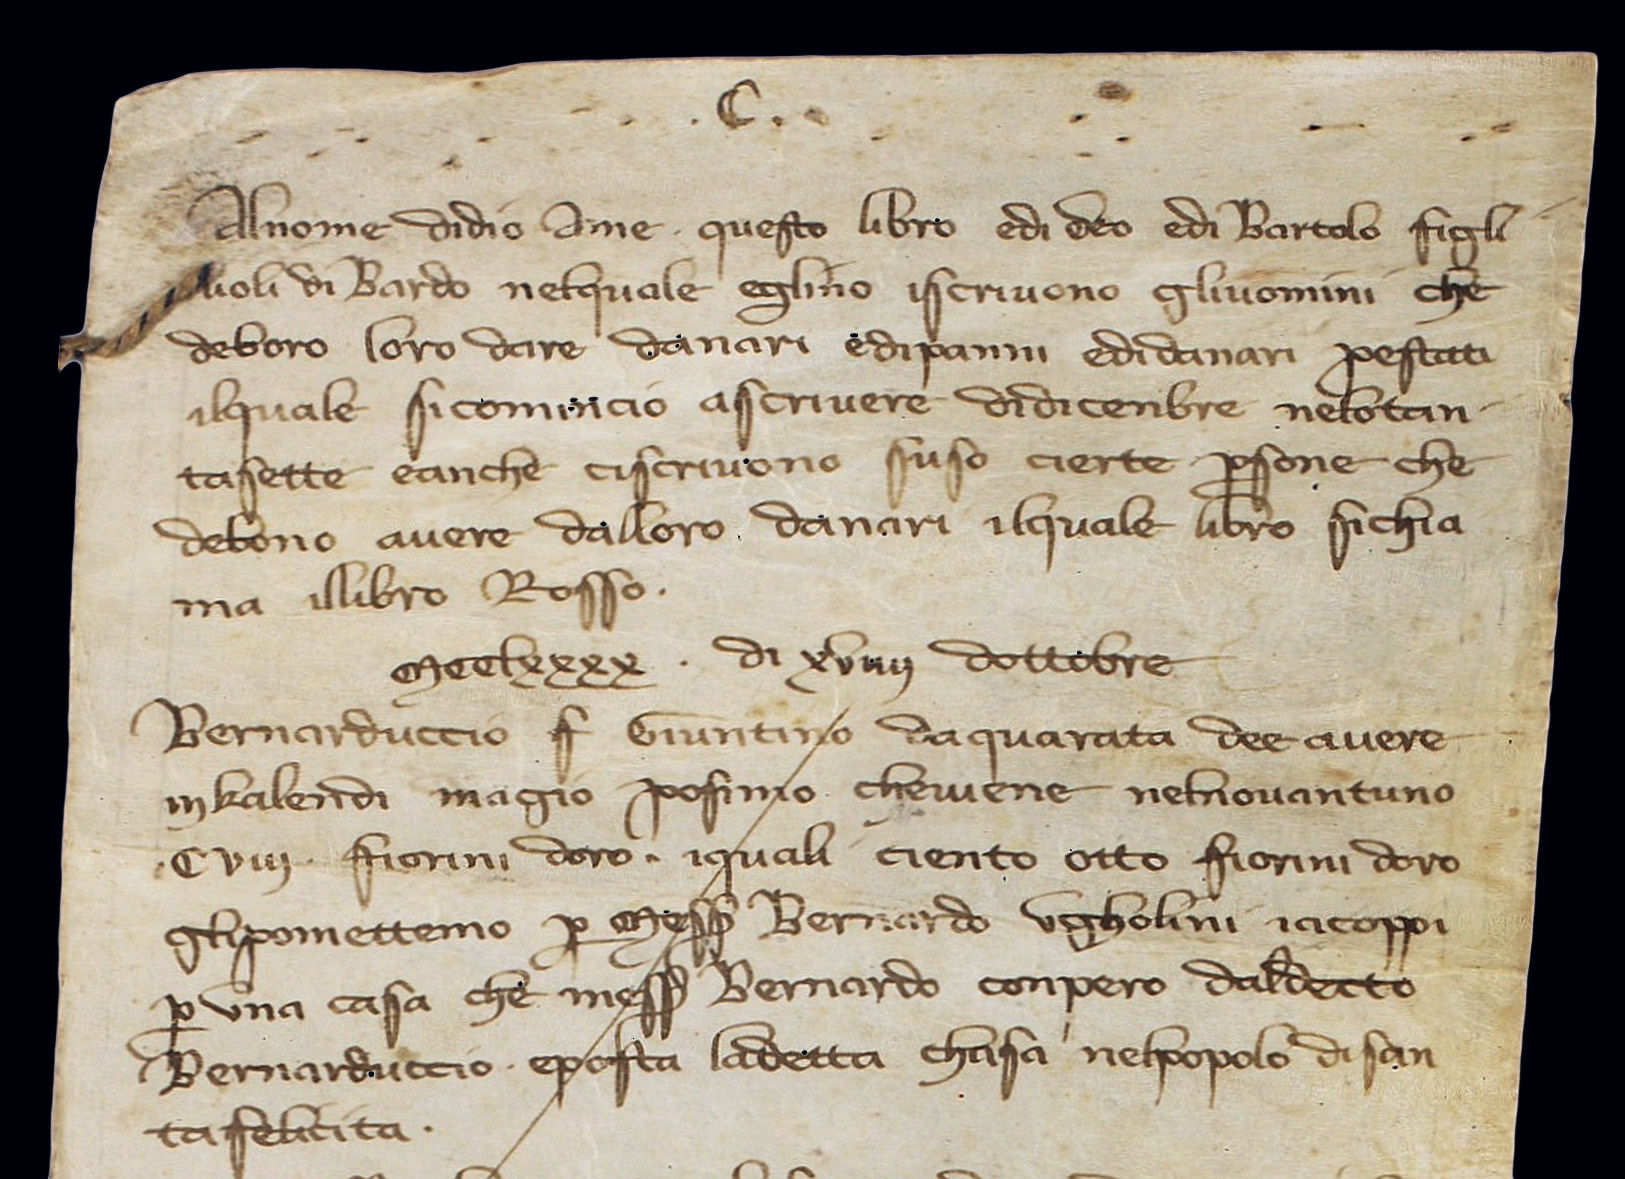 .C.
Alnome didio Ame. questo libro edi deo edi Bartolo figli
uoli di Bardo nelquale eglino iscrivono gliuomini che
deboro loro dare danari edipanni edidanari pestati
ilquale sicomincio ascrivere didicenbre nelotan
tasette eanche ciscrivono suso cierte psone che
debono avere dalloro danari ilquale libro sichia
ma illibro Rosso.
MCClxxxx . di xviiij dottobre
Bernarduccio f Giuntino daquarata dee avere
inkalendi magio posimo cheviene nelnovantuno
.C viij. fiorini doro. iquali ciento otto fiorini doro
glipomettemo p Mess Bernardo Ugholini iacoppi
p una casa che mess Bernardo conpero daldetto
Bernarduccio. eposta ladetta chasa nelpopolo disan
tafelicita.